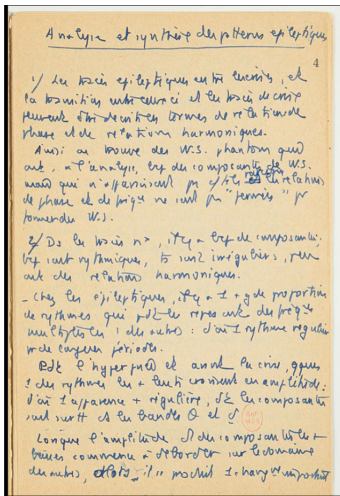 Analyse et synthèse des patterns épileptiques
4
1/ Les tracés épileptiques entre les crises, et
la transition entre ceux-ci et les tracés de crise
peuvent être décrits en termes de relation de
phase et de relations harmoniques.
Ainsi on trouve des W.S. phantoms qui
ont, à l'analyse, bcp des composantes de W.S.
mais qui n'apparaissent pas
de phase et de fréq ne sont pas "fermées" pr
former des W.S.
2/ Ds les tracés nx, il y a bcp de composantes.
bcp sont rythmiques, ts sont irréguliers, peu
ont des relations harmoniques.
- Chez les épileptiques, il y a 1 + gde proportion
de rythmes qui pdt le repos ont des fréq
multiples les 1 des autres : d'où 1 rythme régulier
de longues périodes.
Pdt l'hyperpnée et avant la crise, qques
1 des rythmes les + lents croissent en amplitude :
d'où 1 apparence + régulière, les composantes
sont surtt ds les bandes θ et δ
Lorsque l'amplitude des composantes les +
basses commence à déborder sur le domaine
des autres, alors il se produit 1 changt important